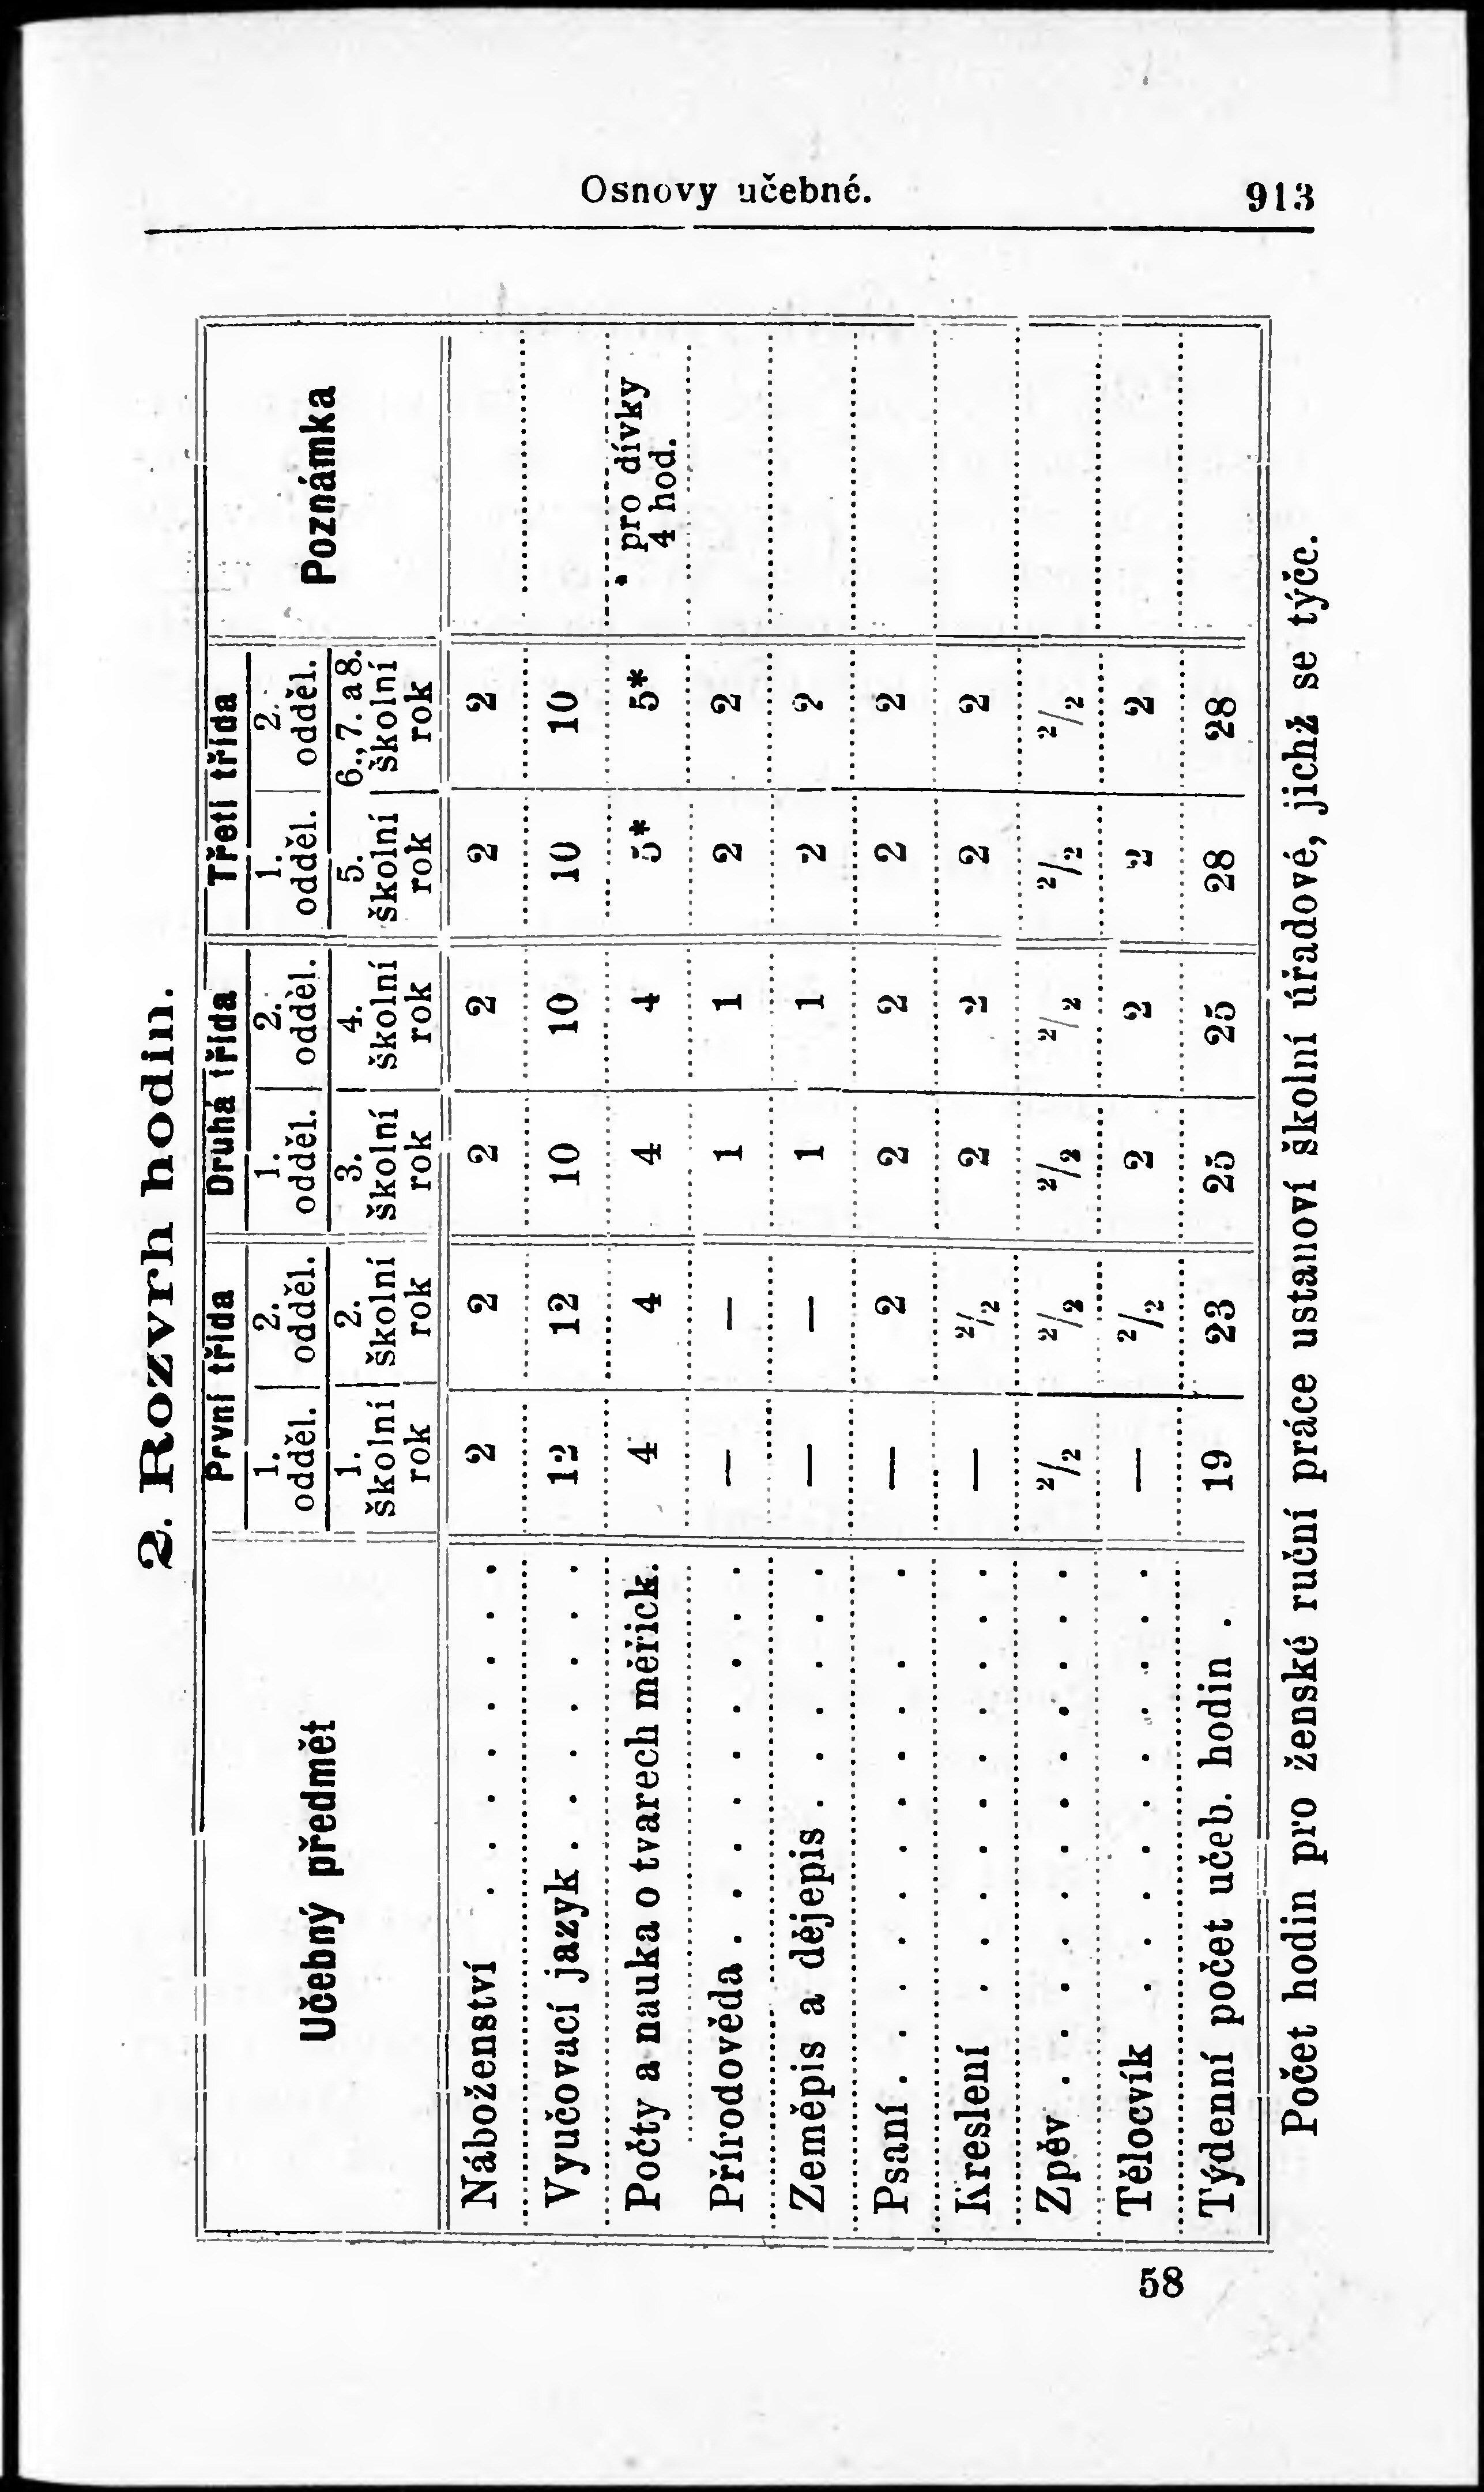 Osnovy učebné. 913
2. Rozvrh hodin.
Učebný předmět První třída Druhá třída Třetí třída Poznámka
1. odděl. 2. odděl. 1. odděl. 2. odděl. 1. odděl. 2. odděl.
1. školní rok 2. školní rok 3. školní rok 4. školní rok 5. školní rok 6., 7. a 8. školní rok
Náboženství . . . . . . . . 2 2 2 2 2 2
Vyučovací jazyk . . . . . . . 12 12 10 10 10 10
Počty a nauka o tvarech měřick. 4 4 4 4 5* 5* * pro dívky 4 hod.
Přírodověda . . . . . . . . . — — 1 1 2 2
Zeměpis a dějepis . . . . . . — — 1 1 2 2
Psaní . . . . . . . . . . . — 2 2 2 2 2
Kreslení . . . . . . . . . . — 2/2 2 2 2 2
Zpěv . . . . . . . . . . . . 2/2 2/2 2/2 2/2 2/2 2/2
Tělocvík . . . . . . . . . . — 2/2 2 2 2 2
Týdenní počet učeb. hodin . 19 23 25 25 28 28
Počet hodin pro ženské ruční práce ustanoví školní úřadové, jichž se týče.
58